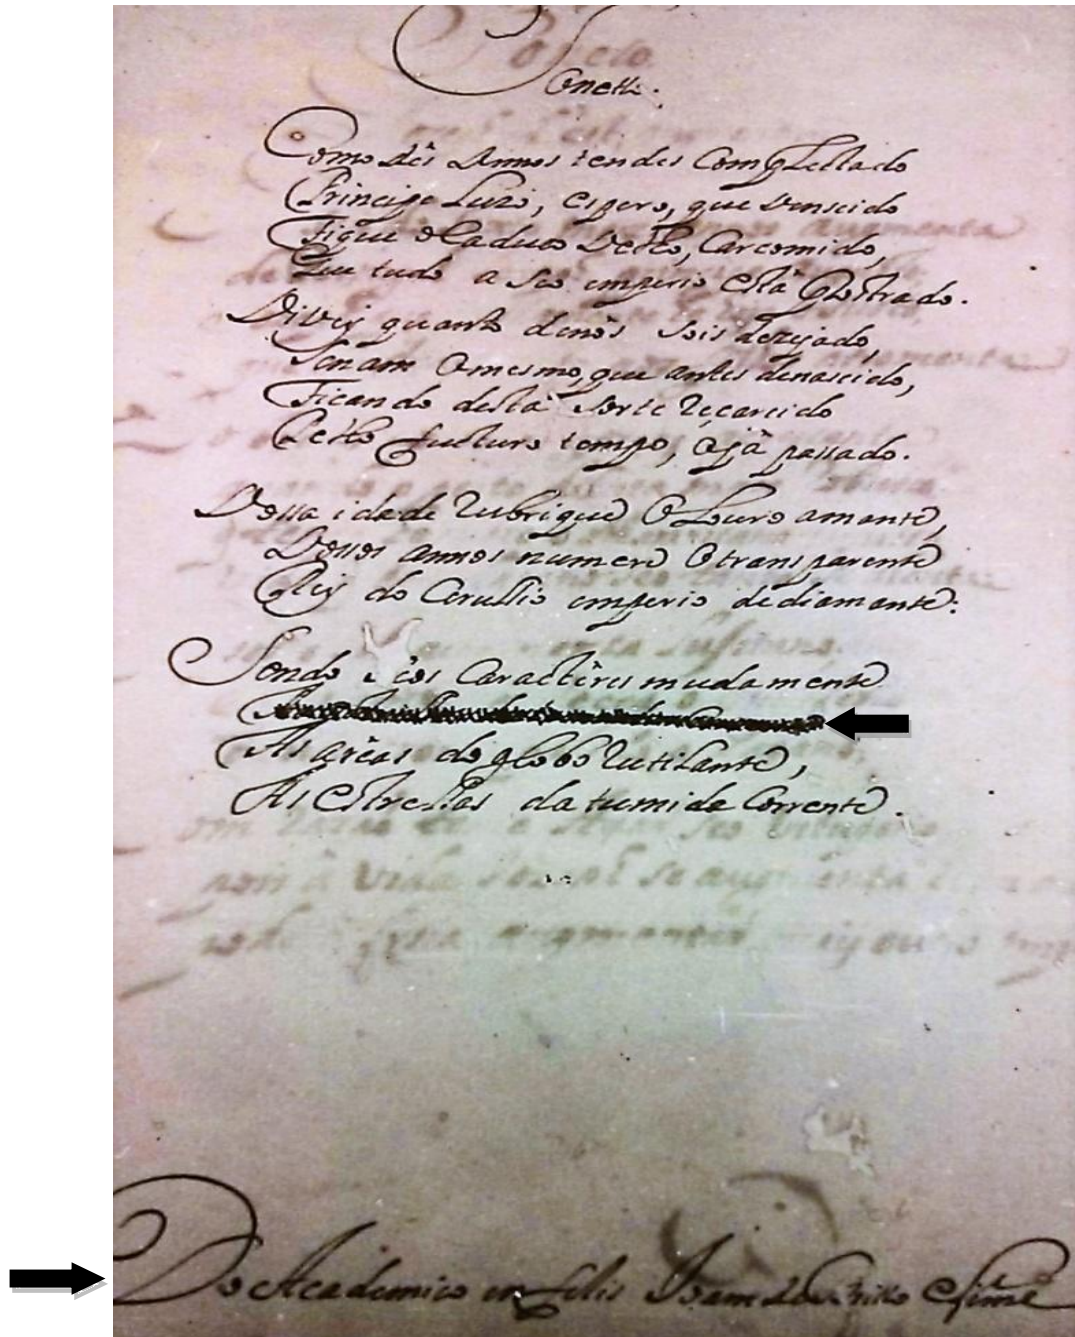 Sonetto.
Como dês Annos tendes Compllettado
Principe Luzo, espero, que vensido
Fique o Caduco Cetto, Carcomido,
Que tudo a seo imperio está prostrado.
Diveis quanto denòs sois dezejado,
Senam o mesmo, que antes denascido,
Ficando desta sorte reçarcido
Cetto futuro tempo, ojà passado.
Vossa idade rubrique o Louro amante,
Vossos annos numere o transparente
Rey do Cerullio imperio dediamante:
Sendo seos Caractères mudamente
As arêas do globo rutilante,
As estrellas da tumida Corrente.
Do Academico infelis Joam de Brito e Lima